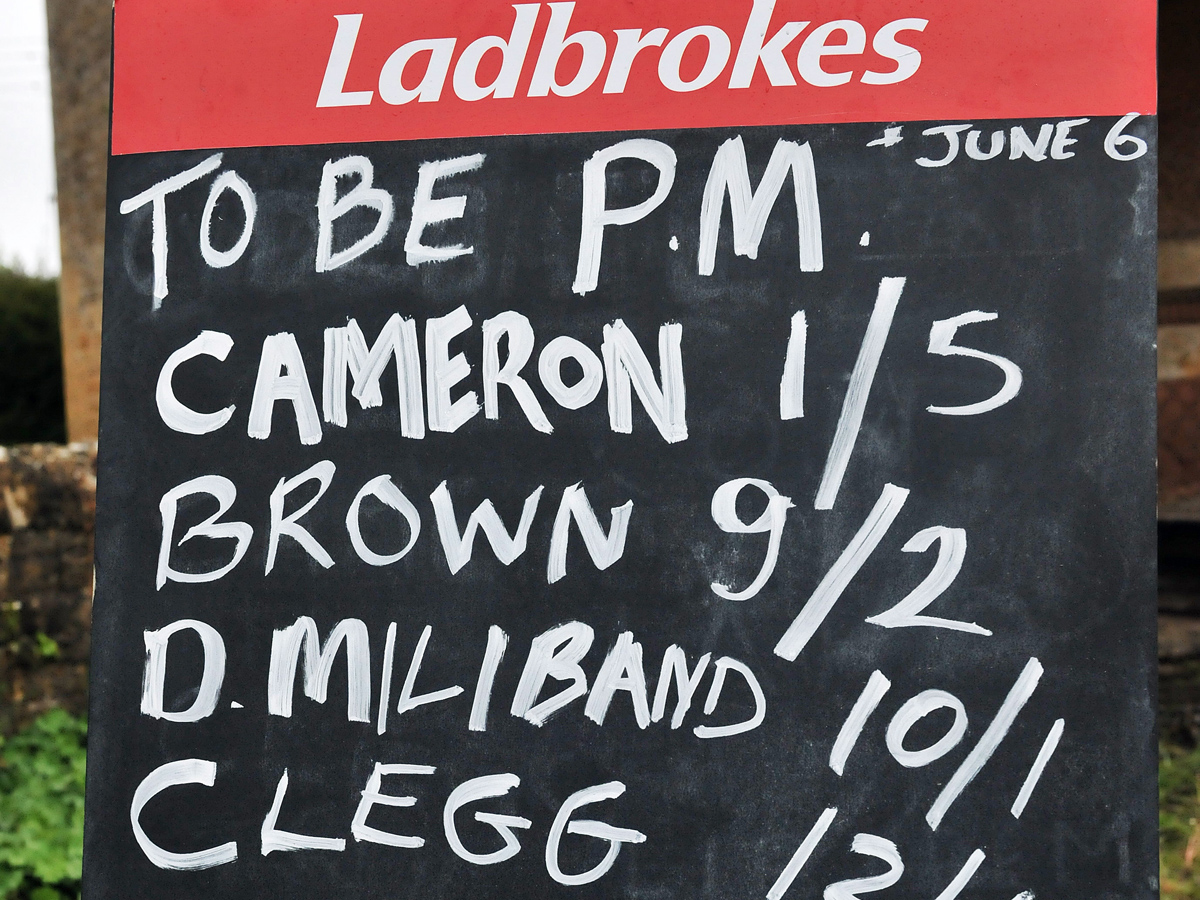 Ladbrokes
* JUNE 6
TO BE P.M.
CAMERON 1/5
BROWN 9/2
D. MILIBAND 10/1
CLEGG 12/